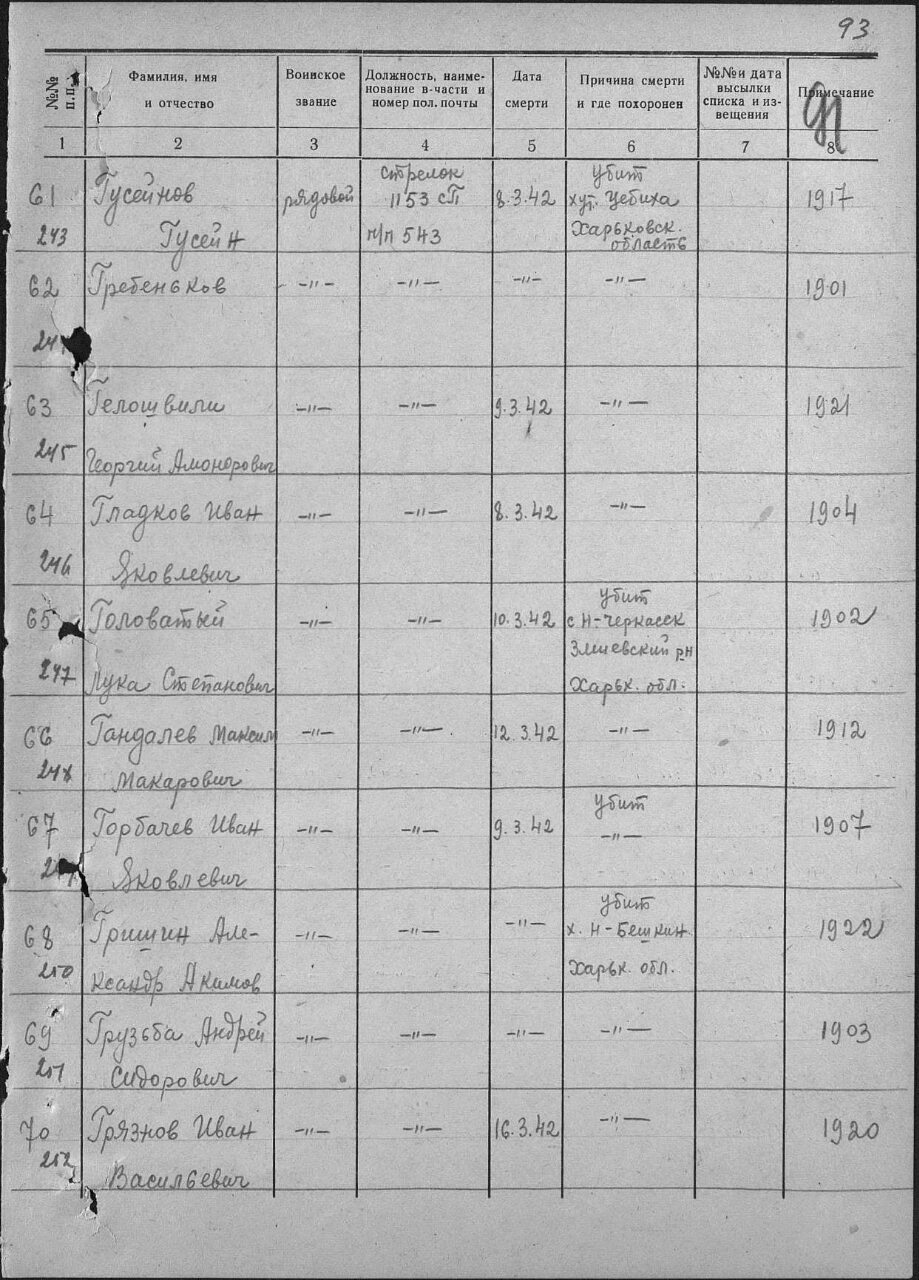 93
№№ п.п. Фамилия, имя и отчество Воинское звание Должность, наименование в-части и номер пол. почты Дата смерти Причина смерти и где похоронен №№ и дата высылки списка и извещения Примечание
91
1 2 3 4 5 6 7 8
стрелок убит
61 Гусейнов рядовой 1153 сп 8.3.42 хут. Цебиха 1917
243 Гусейн п/п 543 Харьковск. область
62 Гребеньков —"— —"— —"— —"— 1901
63 Гелошвили —"— —"— 9.3.42 —"— 1921
245 Георгий Амонорович
64 Гладков Иван —"— —"— 8.3.42 —"— 1904
246 Яковлевич
убит
65 Головатый —"— —"— 10.3.42 с Н-Черкасек 1902
Змиевский рн
247 Лука Степанович Харьк. обл.
66 Гандалев Максим —"— —"— 12.3.42 —"— 1912
248 Макарович
убит
67 Горбачев Иван —"— —"— 9.3.42 —"— 1907
Яковлевич
убит
68 Гришин Але- —"— —"— —"— х. Н-Бешкин 1922
250 ксандр Акимов Харьк. обл.
69 Грузьба Андрей —"— —"— —"— —"— 1903
251 Сидорович
70 Грязнов Иван —"— —"— 16.3.42 —"— 1920
252 Васильевич